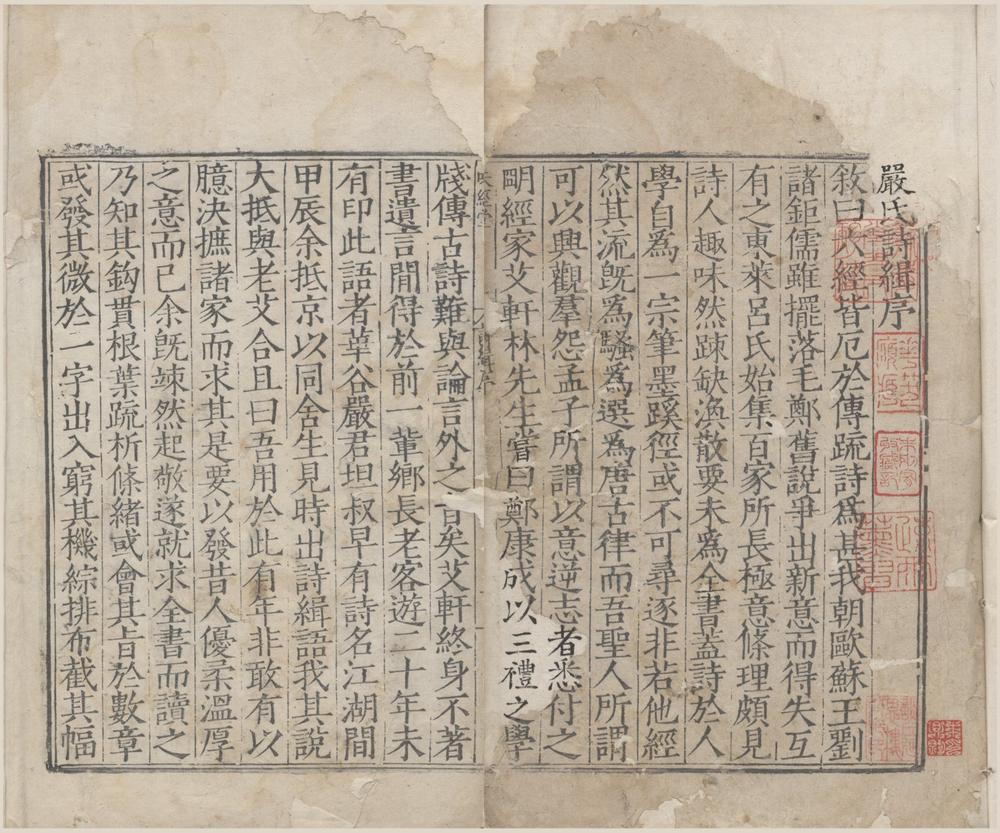 嚴氏詩緝序
敘曰六經皆厄於傳疏詩爲甚我朝歐蘇王劉
諸鉅儒雖擺落毛鄭舊說爭出新意而得失互
有之東萊呂氏始集百家所長極意條理頗見
詩人趣味然疎缺渙散要未爲全書蓋詩於人
學自爲一宗筆墨蹊徑或不可尋逐非若他經
然其流旣爲騷爲選爲唐古律而吾聖人所謂
可以興觀羣怨孟子所謂以意逆志者悉付之
明經家艾軒林先生嘗曰鄭康成以三禮之學
牋傳古詩難與論言外之旨矣艾軒終身不著
書遺言閒得於前一輩鄉長老客遊二十年未
有印此語者華谷嚴君坦叔早有詩名江湖間
甲辰余抵京以同舍生見時出詩緝語我其說
大抵與老艾合且曰吾用於此有年非敢有以
臆決摭諸家而求其是要以發昔人優柔溫厚
之意而已余旣竦然起敬遂就求全書而讀之
乃知其鈎貫根葉疏析條緒或會其旨於數章
或發其微於一字出入窮其機綜排布截其幅